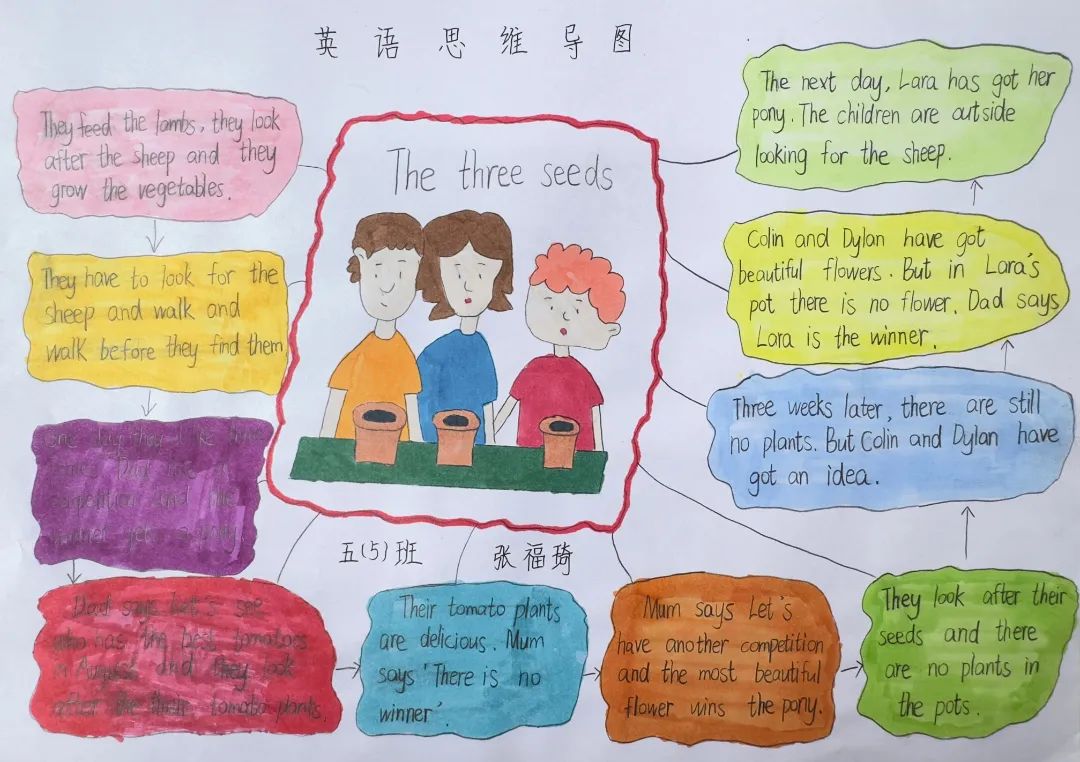 英语思维导图
The three seeds
They feed the lambs, they look
after the sheep and they
grow the vegetables.
They have to look for the
sheep and walk and
walk before they find them
One day they
Dad has a
competition and the
winner gets a pony.
Dad says Let's see
who has the best tomatoes
in August and they look
after the their tomato plants.
Their tomato plants
are delicious. Mum
says 'There is no
winner'.
Mum says Let's
have another competition
and the most beautiful
flower wins the pony.
They look after their
seeds and there
are no plants in
the pots.
Three weeks later, there are still
no plants. But Colin and Dylan have
got an idea.
Colin and Dylan have got
beautiful flowers. But in Lara's
pot there is no flower. Dad says
Lara is the winner.
The next day, Lara has got her
pony. The children are outside
looking for the sheep.
五(5)班 张福琦